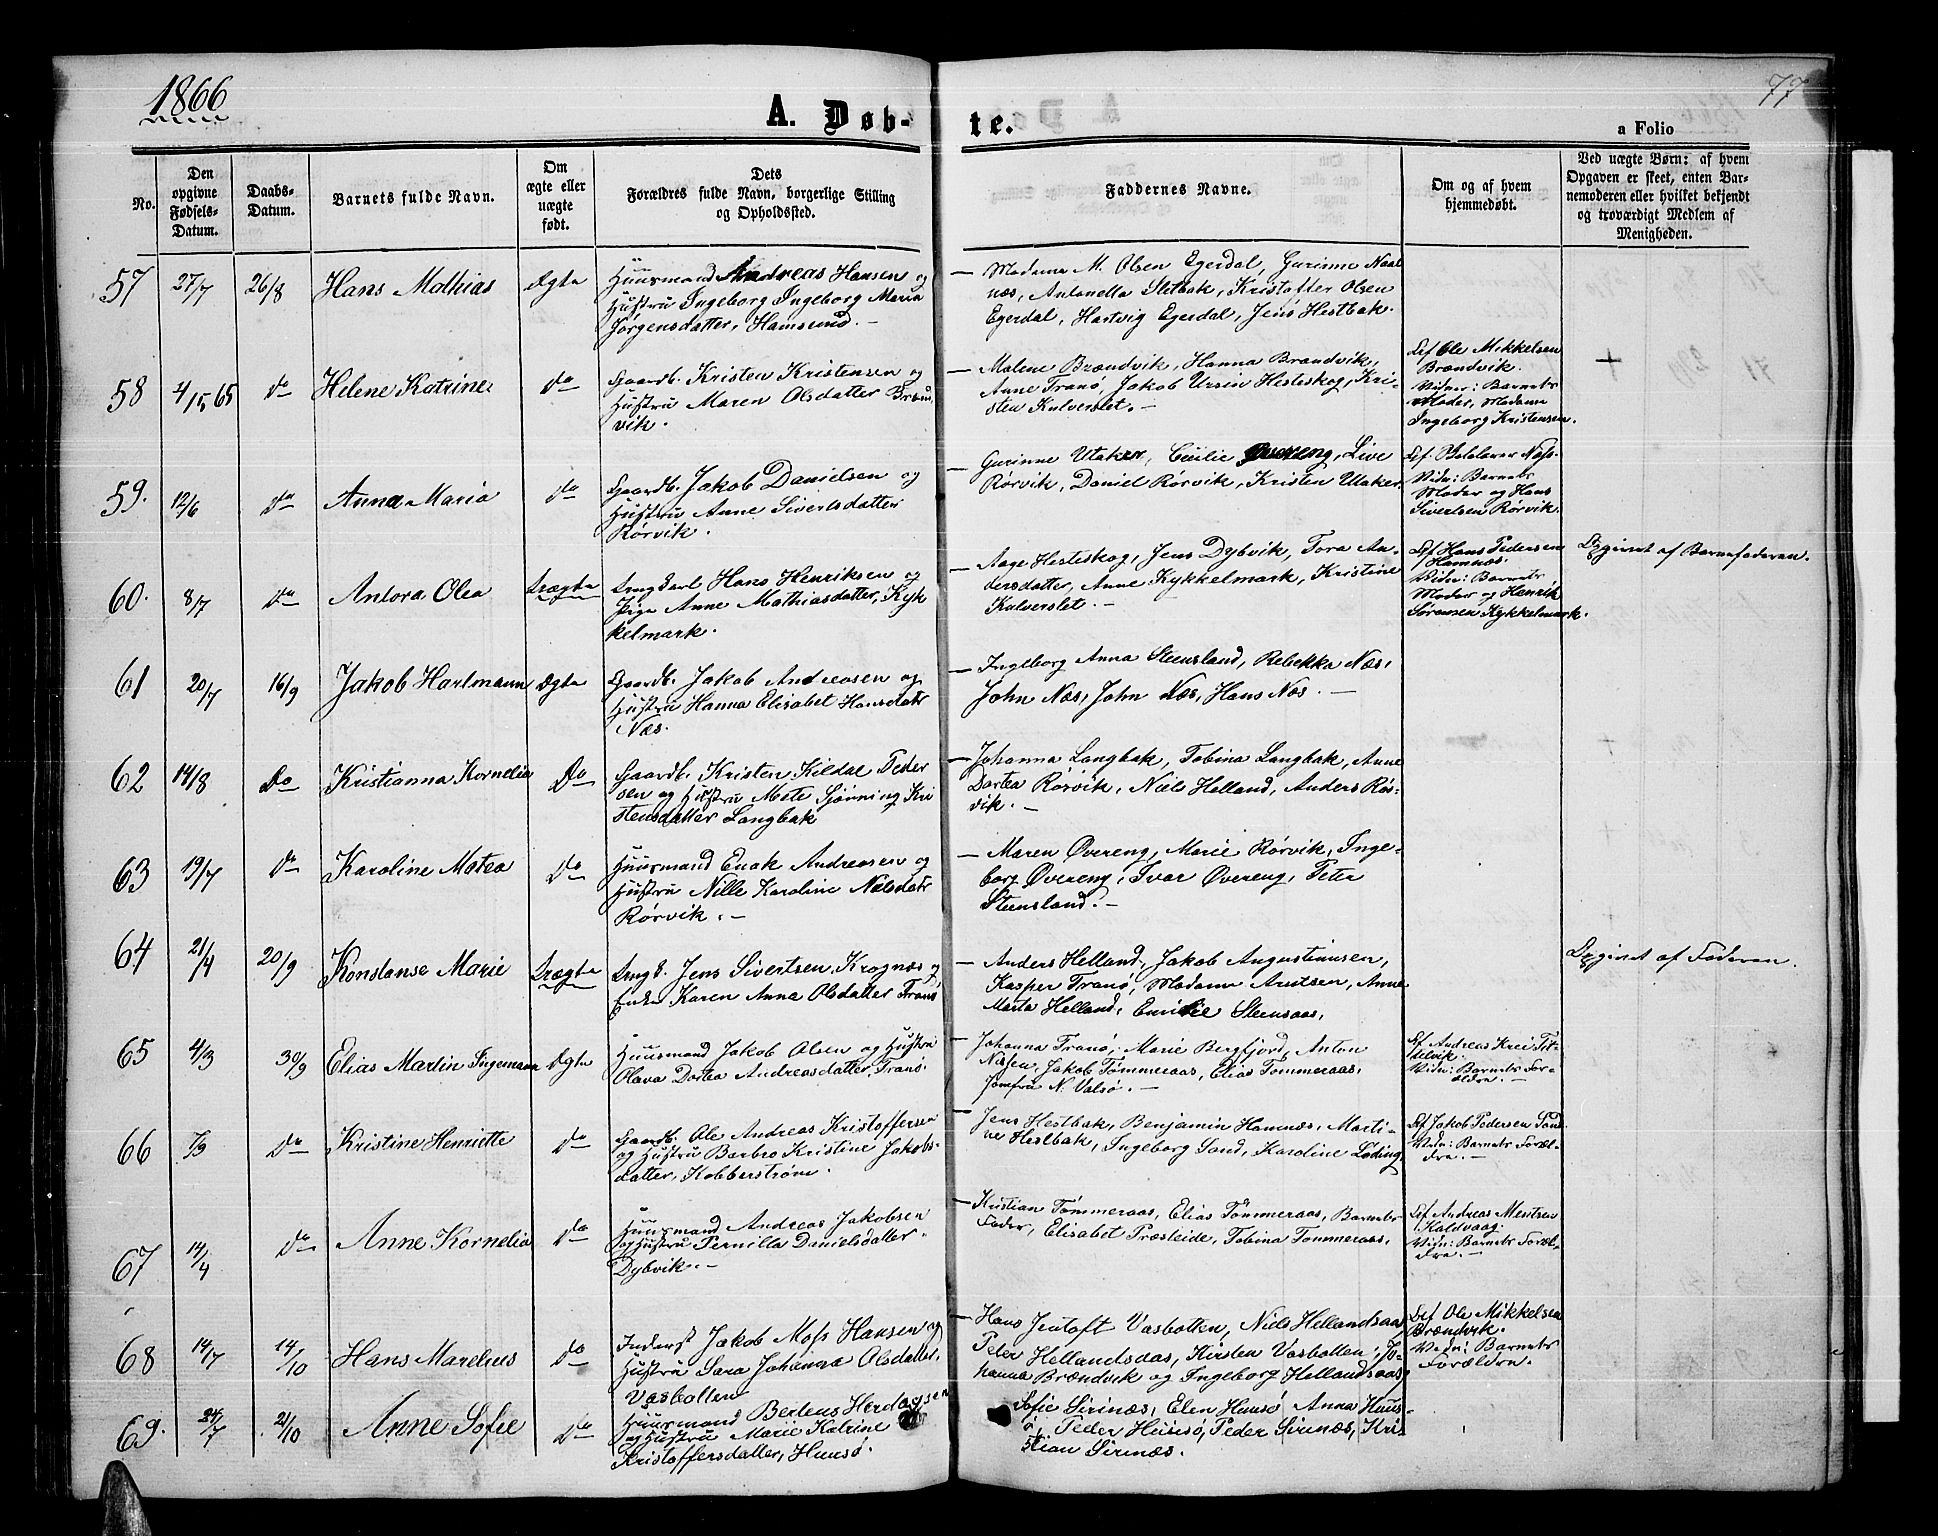 1866
77
A. Døb-
te.
a Folio
No.
Den
opgivne
Fødsels-
Datum.
Daabs-
Datum.
Barnets fulde Navn.
Om
ægte eller
uægte
født.
Dets
Forældres fulde Navn, borgerlige Stilling
og Opholdssted.
Faddernes Navne.
Om og af hvem
hjemmedøbt.
Ved uægte Børn: af hvem
Opgaven er skeet, enten Bar-
nemoderen eller hvilket bekjendt
og troværdigt Medlem af
Menigheden.
57 27/7 26/8 Hans Mathias Ægta
Huusmand Andreas Hansen og
Hustru Ingeborg Ingeborg Maria
Jørgensdatter, Hamsund. —
— Madame M. Olsen Egerdal, Gurinne Naal-
næs, Antonella Slitbak, Kristoffer Olsen
Egerdal, Hartvig Egerdal, Jens Hestbak.
58 4/15 65 Do Helene Katrine Do
Gaardb. Kristen Kristensen og
Hustru Maren Olsdatter Brænd-
vik.
— Malene Brændvik, Hanna Brændvik,
Anne Tranø, Jakob Ursin Hesteskog, Kri-
sten Kulverslet. —
Af Ole Mikkelsen
Brændvik.
Vidner: Barnets
Moder, Madame
Ingeborg Kristensen.
+
59. 12/6 Do Anna Maria Do
Gaardb. Jakob Danielsen og
Hustru Anne Sivertsdatter
Rørvik.
— Gurinne Utaker, Cecilie Øvereng, Live
Rørvik, Daniel Rørvik, Kristen Utaker.
Vidn: Barnets
Moder og Hans
Sivertsen Rørvik.
60. 8/7 Do Antora Olea Uægta
Ungkarl Hans Henriksen og
Pige Anne Mathiasdatter, Kyk
kelmark.
— Aage Hesteskog, Jens Dybvik, Tora An-
dersdatter, Anne Kykkelmark, Kristine
Kulverslet. —
Af Hans Pedersen
Hamnæs.
Vidn: Barnets
Moder og Henrik
Sørensen Kykkelmark.
Opgivet af Barnefaderen.
61 20/7 16/9 Jakob Hartmann Ægta
Gaardb. Jakob Andreasen og
Hustru Hanna Elisabet Hansdatr
Næs.
— Ingeborg Anna Steensland, Rebekka Næs,
John Næs, John Næs, Hans Næs. —
62 14/8 Do Kristianna Kornelia Do
Gaardb. Kristen Kildal Peder
sen og Hustru Mete Sjønning Kri
stensdatter Langbak
— Johanna Langbak, Tobina Langbak, Anne
Dortea Rørvik, Niels Helland, Anders Rør-
vik. —
63 19/7 Do Karoline Matea Do
Huusmand Enak Andreasen og
Hustru Nille Karoline Nielsdatr
Rørvik. —
— Maren Øvereng, Marie Rørvik, Inge-
borg Øvereng, Ivar Øvereng, Peter
Steensland. —
64 21/4 20/9 Konstanse Marie Uægta
Ungk. Jens Sivertsen, Krognæs og
Enke Karen Anna Olsdatter Tranø
— Anders Helland, Jakob Augustinusen,
Kasper Tranø, Madame Arntsen, Anne
Marta Helland, Emilie Steensaas,
Opgivet af Faderen.
65 4/3 30/9 Elias Martin Ingemann Ægta
Huusmand Jakob Olsen og Hustru
Olava Dortea Andreasdatter, Tranø.
— Johanna Tranø, Marie Bergfjord, Anton
Nissen, Jakob Tømmeraas, Elias Tømmeraas,
Jomfru N. Valsø. —
Af Andreas Krei Fit-
delvik.
Vidn: Barnets For-
ældre. —
66 7/3 Do Kristine Henriette Do
Gaardb. Ole Andreas Kristoffersen
og Hustru Barbro Kristine Jakobs-
datter, Kobberstrøm.
— Jens Hestbak, Benjamin Hamnæs, Marti-
ne Hestbak, Ingeborg Sand, Karoline Løding,
Af Jakob Pedersen Sand
Vidn: Barnets Foræl-
dre. —
67 14/4 Do Anne Kornelia Do
Huusmand Andreas Jakobsen
og Hustru Pernilla Danielsdatter.
Dybvik. —
— Kristian Tømmeraas, Elias Tømmeraas, Barnets
Fader, Elisabet Præsteide, Tobina Tømmeraas,
Af Andreas Meritsen
Kaldvaag.
Vidn: Barnets Foræl-
dre. —
68 14/7 14/10 Hans Marelius Do
Inderst Jakob Moss Hansen og
Hustru Sara Johanna Olsdatter,
Vasbotten
— Hans Jentoft Vasbotten, Niels Hellandsaa,
Peter Hellandsdas, Kirsten Vasbotten, Jo-
hanna Brændvik og Ingeborg Hellandsaas,
Af Ole Mikkelsen
Brændvik.
Vidn: Barnets
Forældre.
69. 24/7 21/10 Anne Sofie Do
Huusmand Berteus Herdagsen
og Hustru Marie Katrine
Kristoffersdatter, Huusø.
Sofie Sirinæs, Elen Huusø, Anna Huus-
ø, Peder Huusø, Peder Sirinæs, Kri-
stian Sirinæs.